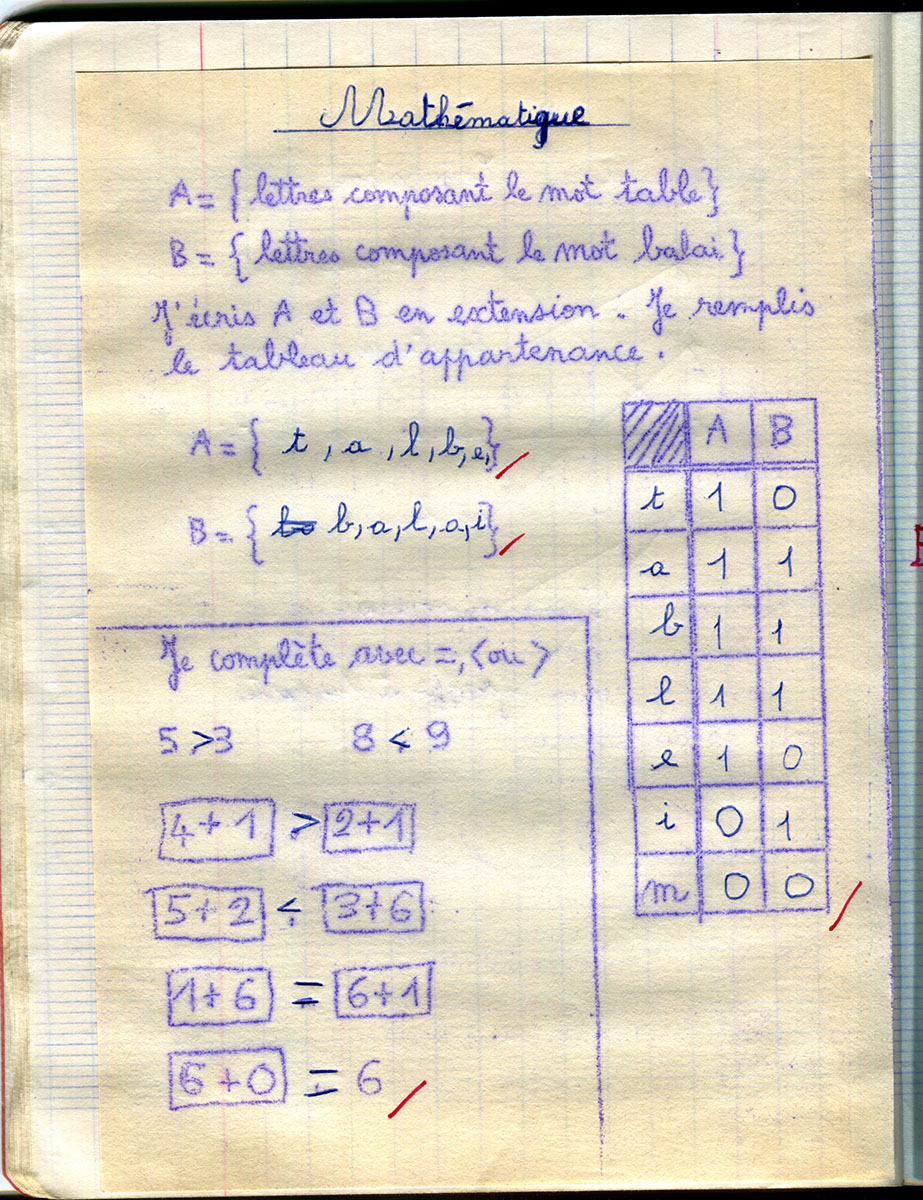 Mathématique
A = { lettres composant le mot table }
B = { lettres composant le mot balai }
J'écris A et B en extension. Je remplis
le tableau d'appartenance.
A = { t, a, l, b, e, }
B = { b, a, l, a, i }
A B
t 1 0
a 1 1
b 1 1
l 1 1
e 1 0
i 0 1
m 0 0
Je complète avec =, < ou >
5 > 3 8 < 9
4 + 1 > 2 + 1
5 + 2 < 3 + 6
1 + 6 = 6 + 1
6 + 0 = 6